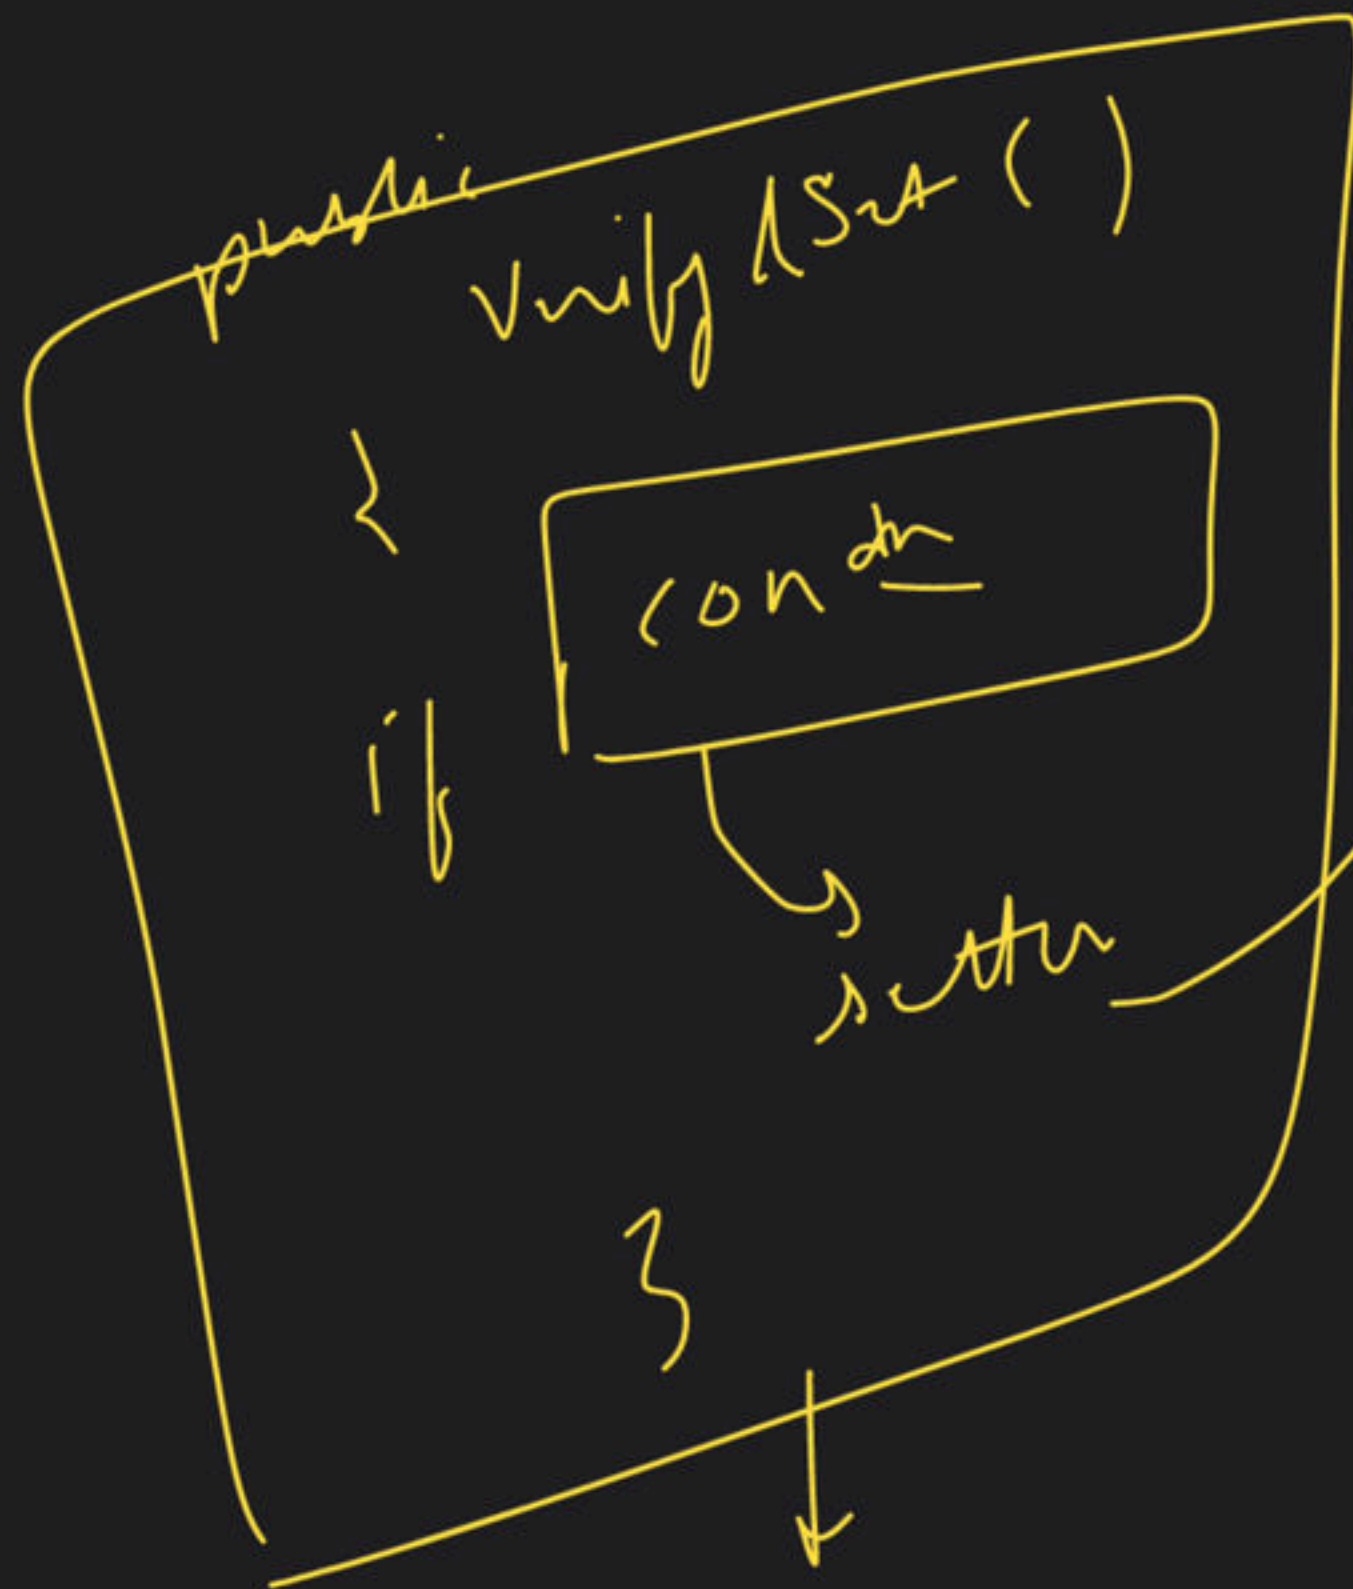 public
Verify&Set ( )
{
condn
if
setter
}